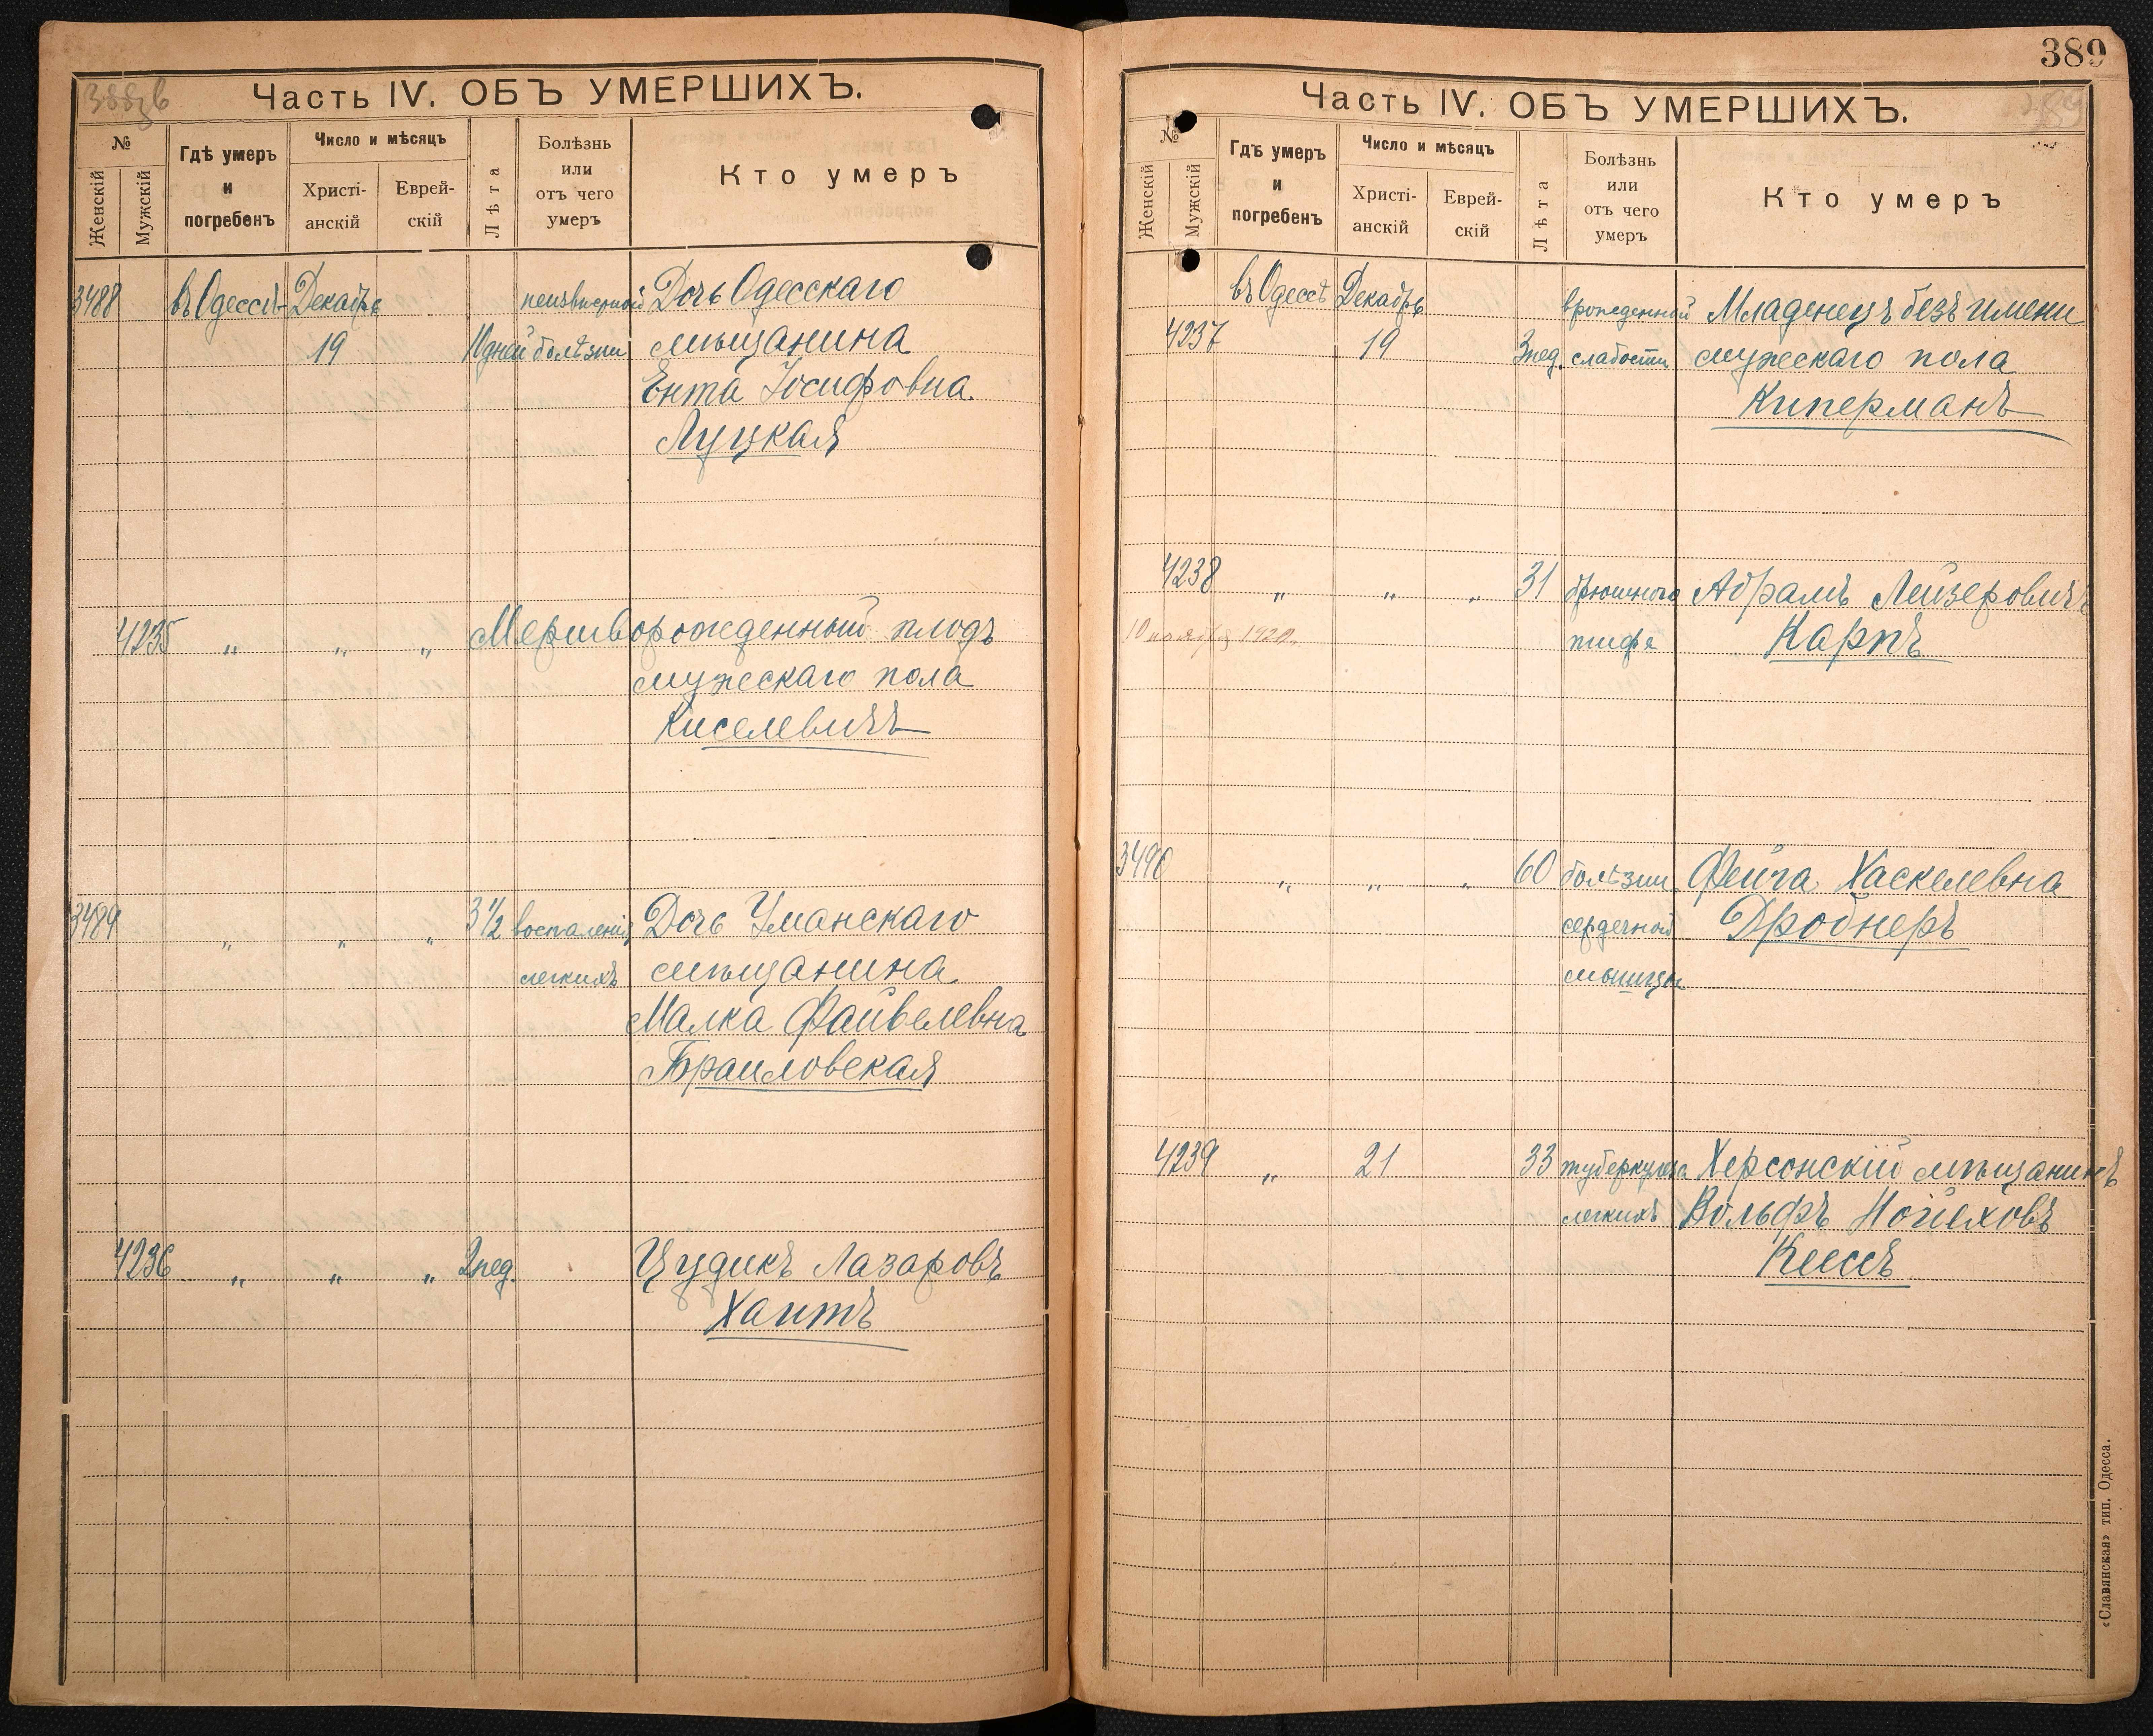 388 зв
Часть IV. ОБЪ УМЕРШИХЪ.
№
Женскій
Мужскій
Гдѣ умеръ
и
погребенъ
Число и мѣсяцъ
Христі-
анскій
Еврей-
скій
Лѣта
Болѣзнь
или
отъ чего
умеръ
Кто умеръ
3488 въ Одессѣ Декабрь неизвѣстной Дочь Одесскаго
19 10 дней болѣзни мѣщанина
Ента Іосифовна
Луцкая
4235 " " " Мертворожденный плодъ
мужескаго пола
Киселевичъ
3489 " " " 3 1/2 воспаленія Дочь Уманскаго
легкихъ мѣщанина
Малка Файвелевна
Браиловская
4236 " " " 2 нед. Цудикъ Лазаровъ
Хаитъ
389
Часть IV. ОБЪ УМЕРШИХЪ.
389
№
Женскій
Мужскій
Гдѣ умеръ
и
погребенъ
Число и мѣсяцъ
Христі-
анскій
Еврей-
скій
Лѣта
Болѣзнь
или
отъ чего
умеръ
Кто умеръ
въ Одессѣ Декабрь врожденной Младенецъ безъ имени
4237 19 3 нед. слабости мужескаго пола
Киперманъ
4238 " " " 31 брюшного Абрамъ Лейзеровичъ
10 ноября 1920 тифа Карпъ
3490 " " " 60 болѣзни Фейга Хаскелевна
сердечной Дробнеръ
мышцы
4239 " 21 33 туберкулеза Херсонскій мѣщанинъ
легкихъ Вольфъ Нойеховъ
Кессъ
«Славянская» тип. Одесса.